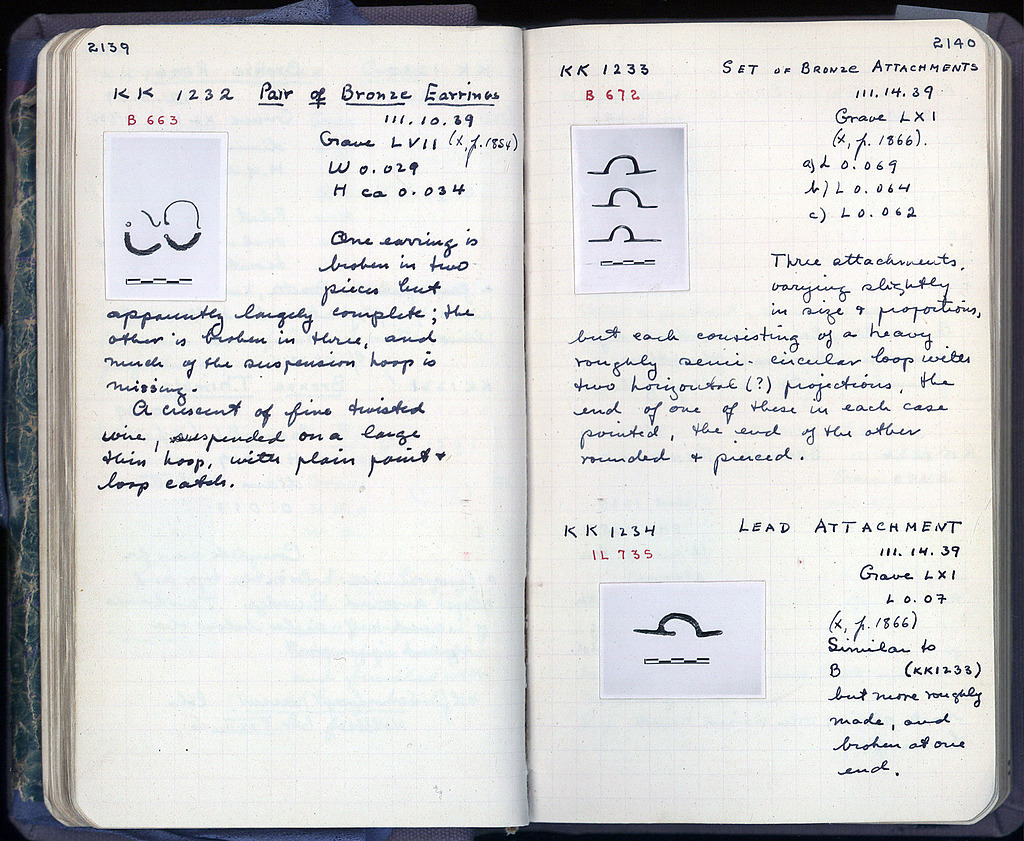 2139
KK 1232 Pair of Bronze Earrings
B 663
III.10.39
Grave LVII (X, p. 1854)
W 0.029
H ca 0.034
One earring is
broken in two
pieces but
apparently largely complete; the
other is broken in three, and
much of the suspension hoop is
missing.
A crescent of fine twisted
wire, suspended on a large
thin hoop, with plain point +
loop catch.
2140
KK 1233 SET OF BRONZE ATTACHMENTS
B 672
III.14.39
Grave LXI
(X, p. 1866).
a) L 0.069
b) L 0.064
c) L 0.062
Three attachments,
varying slightly
in size + proportions,
but each consisting of a heavy
roughly semi-circular loop with
two horizontal (?) projections, the
end of one of these in each case
pointed, the end of the other
rounded + pierced.
KK 1234 LEAD ATTACHMENT
IL 735
III.14.39
Grave LXI
L 0.07
(X, p. 1866)
Similar to
B (KK1233)
but more roughly
made, and
broken at one
end.